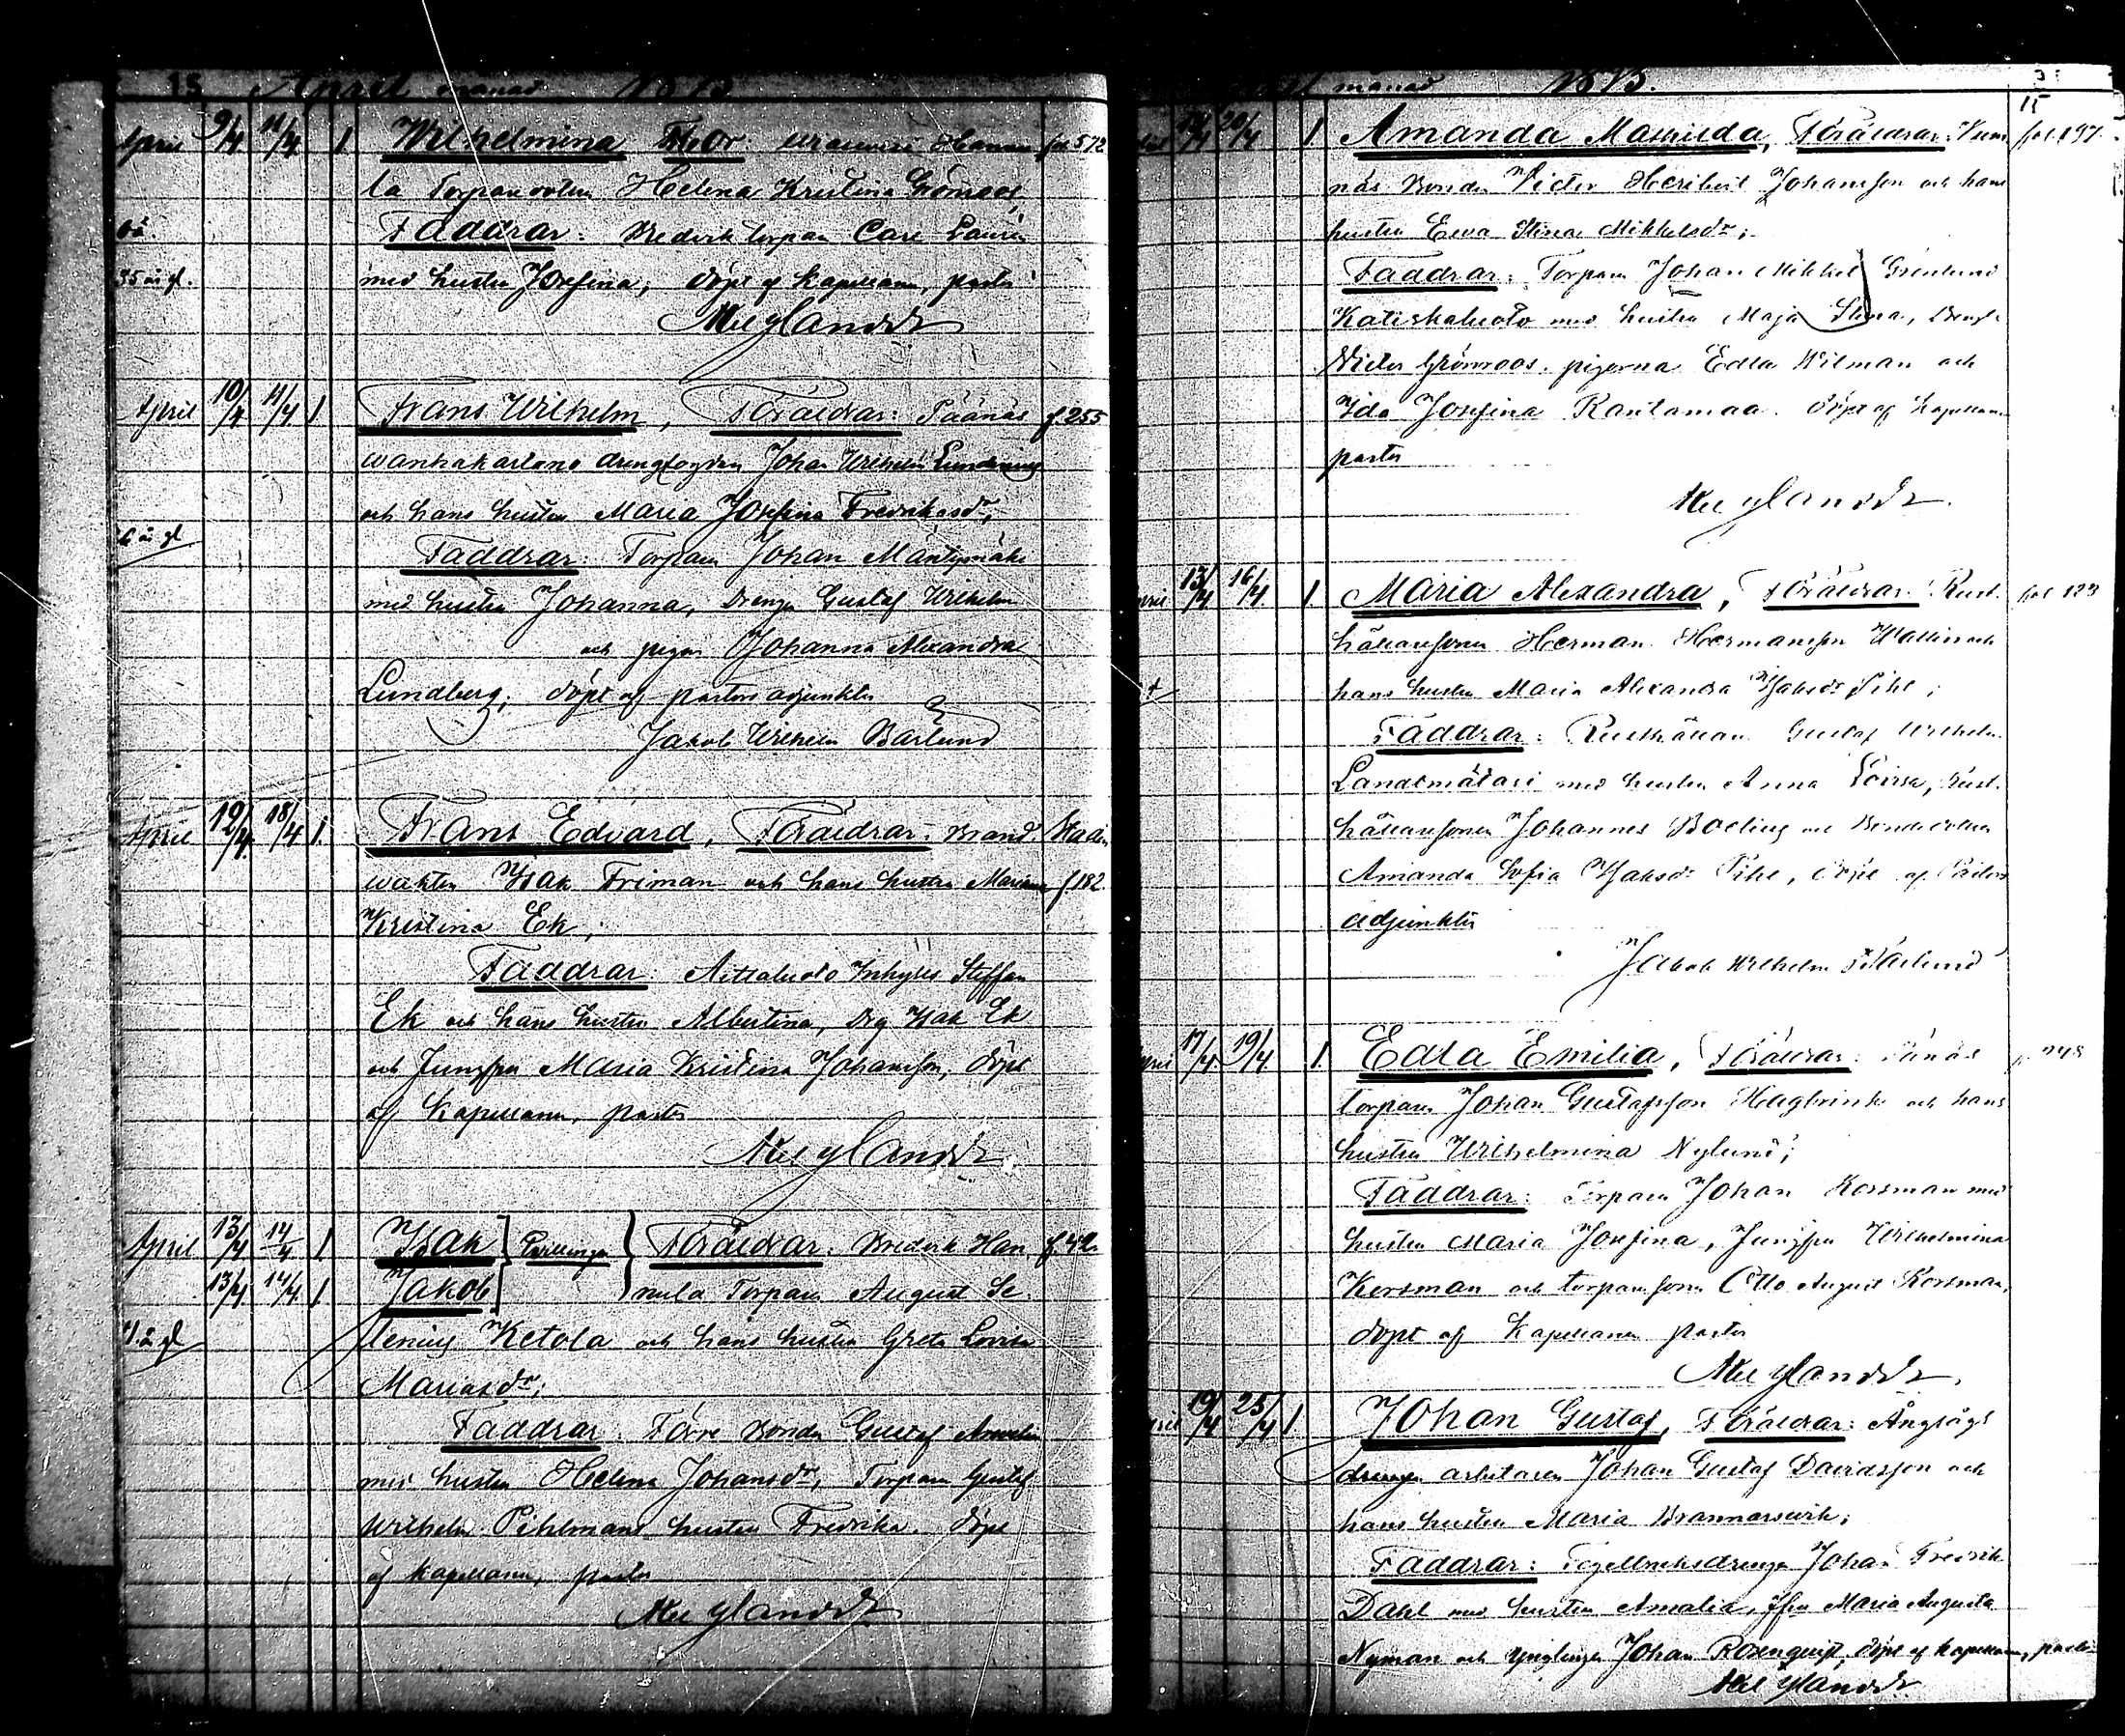 April månad 1875
April 9/4 11/4 1 Wilhelmina, Mor: Hannu fol 572
la Torparedottern Helena Kristina Grönroos,
Faddrar: Bredvik torparen Carl Laurén
35 år gl. med hustru Josefina; döpt af Kapellanen, pastor
April 10/4 11/4 1 Frans Wilhelm, Föräldrar: Päänäs f. 255
wanhakartano drengfogden Johan Wilhelm
och hans hustru Maria Josefina Fredriksdr;
år gl Faddrar: Torparen Johan Mäntymäki
med hustru Johanna, Drengen Gustaf Wilhelm
och pigan Johanna Alexandra
Lundberg; döpt af pastors adjunkten
Jakob Wilhelm Bärlund
April 12/4 18/4 1. Frans Edvard, Föräldrar: Brand- Staden
wakten Isak Friman och hans hustru Mariana f 182.
Kristina Ek;
Faddrar: Inhyses Steffan
Ek och hans hustru Albertina, Drg Isak Ek
och Jungfru Maria Kristina Johansson, döpt
af Kapellanen, pastor
April 13/4 14/4 1 Isak } Tvillingar } Föräldrar: Bredvik Han f. 42
13/4 14/4 1 Jakob nula Torparen August Se-
år gl lenius Ketola och hans hustru Greta Lovisa
Mariasdr;
Faddrar: Bonden Gustaf
med hustru Helena Johansdr, Torparen Gustaf
Wilhelm Pihlmans hustru Fredrika. döpt
af Kapellanen, pastor
månad 1875.
15
20/4 1. Amanda Mathilda, Föräldrar: fol. 197.
näs Bonden Victor Heribert Johansson och hans
hustru Ewa Stina Mikkelsdr;
Faddrar: Torparen Johan Mikkel Grönlund
Katiskaluoto med hustru Maja Stina, Dreng.
Victor Grönroos, pigorna Edla Wilman och
Ida Josefina Rantamaa. döpt af Kapellanen
pastor
13/4 16/4. 1 Maria Alexandra, Föräldrar: Rust- fol 123
hållaresonen Herman Hermansson Wallin och
hans hustru Maria Alexandra Isaksdr Pihl;
Faddrar: Rusthållaren Gustaf Wilhelm
Landtmätari med hustru Anna Lovisa, Rust-
hållaresonen Johannes och Bondedottern
Amanda Sofia Isaksdr Pihl, döpt af Pastors
adjunkten
Jakob Wilhelm Bärlund
17/4. 19/4. 1. Edla Emilia, Föräldrar:
torparen Johan Gustafsson Hagbrink och hans
hustru Wilhelmina Nylund;
Faddrar: Torparen Johan Korsman med
hustru Maria Josefina, Jungfru Wilhelmina
Korsman och torparesonen Otto August Korsman,
döpt af Kapellanen pastor
19/4 25/4 1 Johan Gustaf, Föräldrar: Ångsågs
arbetaren Johan Gustaf Davidsson och
hans hustru Maria;
Faddrar: Tegelbruksdrengen Johan Fredrik
Dahl med hustru Amalia, Jfru Maria Augusta
Nyman och Ynglingen Johan Rosenqvist, döpt af Kapellanen, pastor